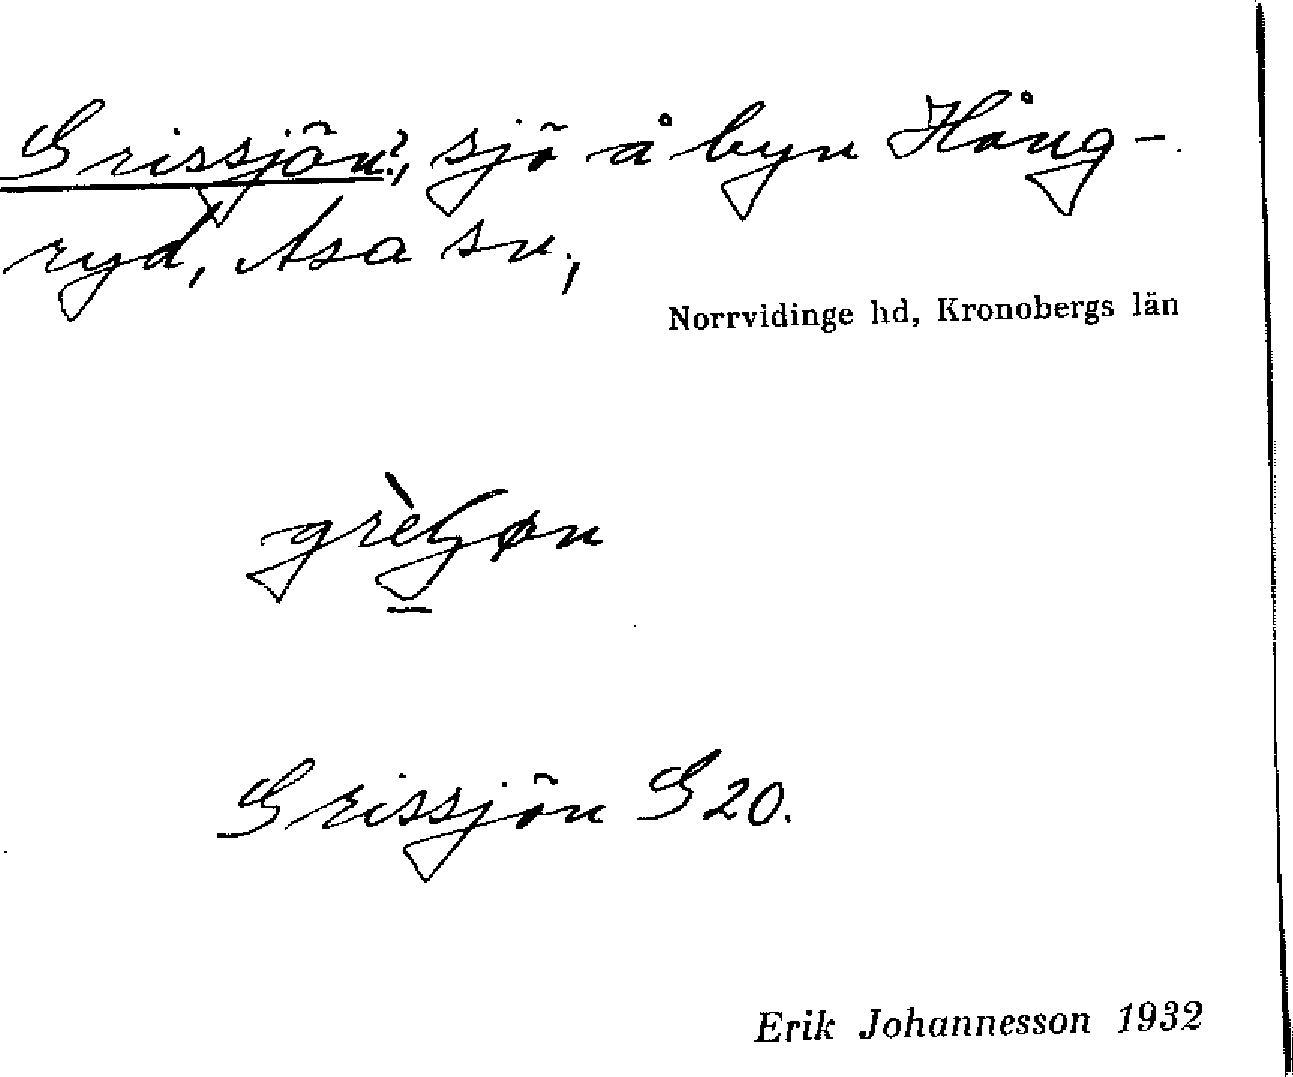 Grissjön?, sjö å byn Hång-
ryd, Asa sn,
Norrvidinge hd, Kronobergs län
Grissjön G20.
Erik Johannesson 1932